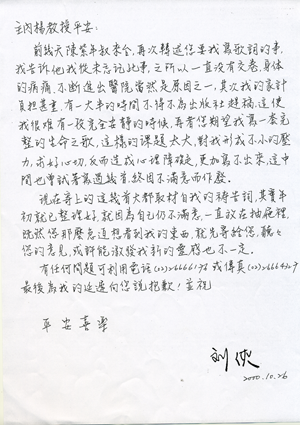 主內楊教授平安：
前幾天陳紫年叔來會，再次轉述您要我寫歌詞的事，
我告訴他我從未忘記此事，之所以一直沒有交卷，身体
的病痛，不斷進出醫院當然是原因之一，其次我的家計
負担甚重，有一大半的時間不得不為出版社趕稿，這使
我很难有一段完全安静的時候，再者您期望我寫一套完
整的生命之歌，這樣的課題太大，對我形成不小的壓
力，求好心切，反而造成心理障碍，更加寫不出來，這中
間也曾試著寫過幾首，終因不滿意而作廢。
現在寄上的這幾首大都取材自我的禱告詞，其實年
初就已整理好，就因為自己仍不滿意，一直放在抽屜裡，
既然您那麼急迫想看到我的東西，就先寄給您，聽々
您的意見，或許能激發我新的靈感也不一定。
有任何問題可利用電話(02)26666198 或傳真(02)2664929
最後為我的延遲向您說抱歉！並祝
平安喜樂
劉俠
2000.10.26